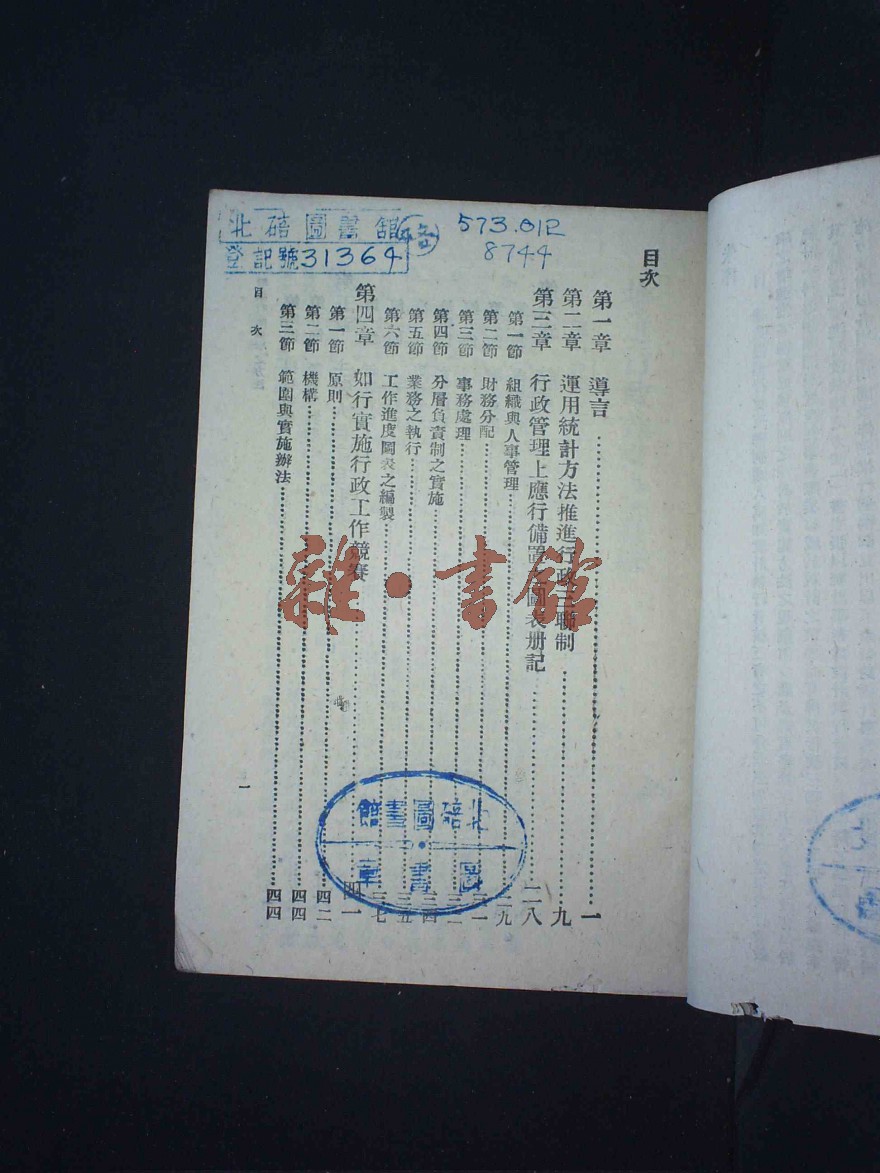 北碚圖書館
登記號31364
573.01R
8744
目次
第一章 導言 一
第二章 運用統計方法推進行政三聯制 九
第三章 行政管理上應行備置之圖表册記 二八
第一節 組織與人事管理 二九
第二節 財務分配 三一
第三節 事務處理 三二
第四節 分層負責制之實施 三四
第五節 業務之執行 三五
第六節 工作進度圖表之編製 三七
第四章 如何實施行政工作競賽 四一
第一節 原則 四二
第二節 機構 四四
第三節 範圍與實施辦法 四四
目次
一
北碚圖書館
圖書章
雜·書館